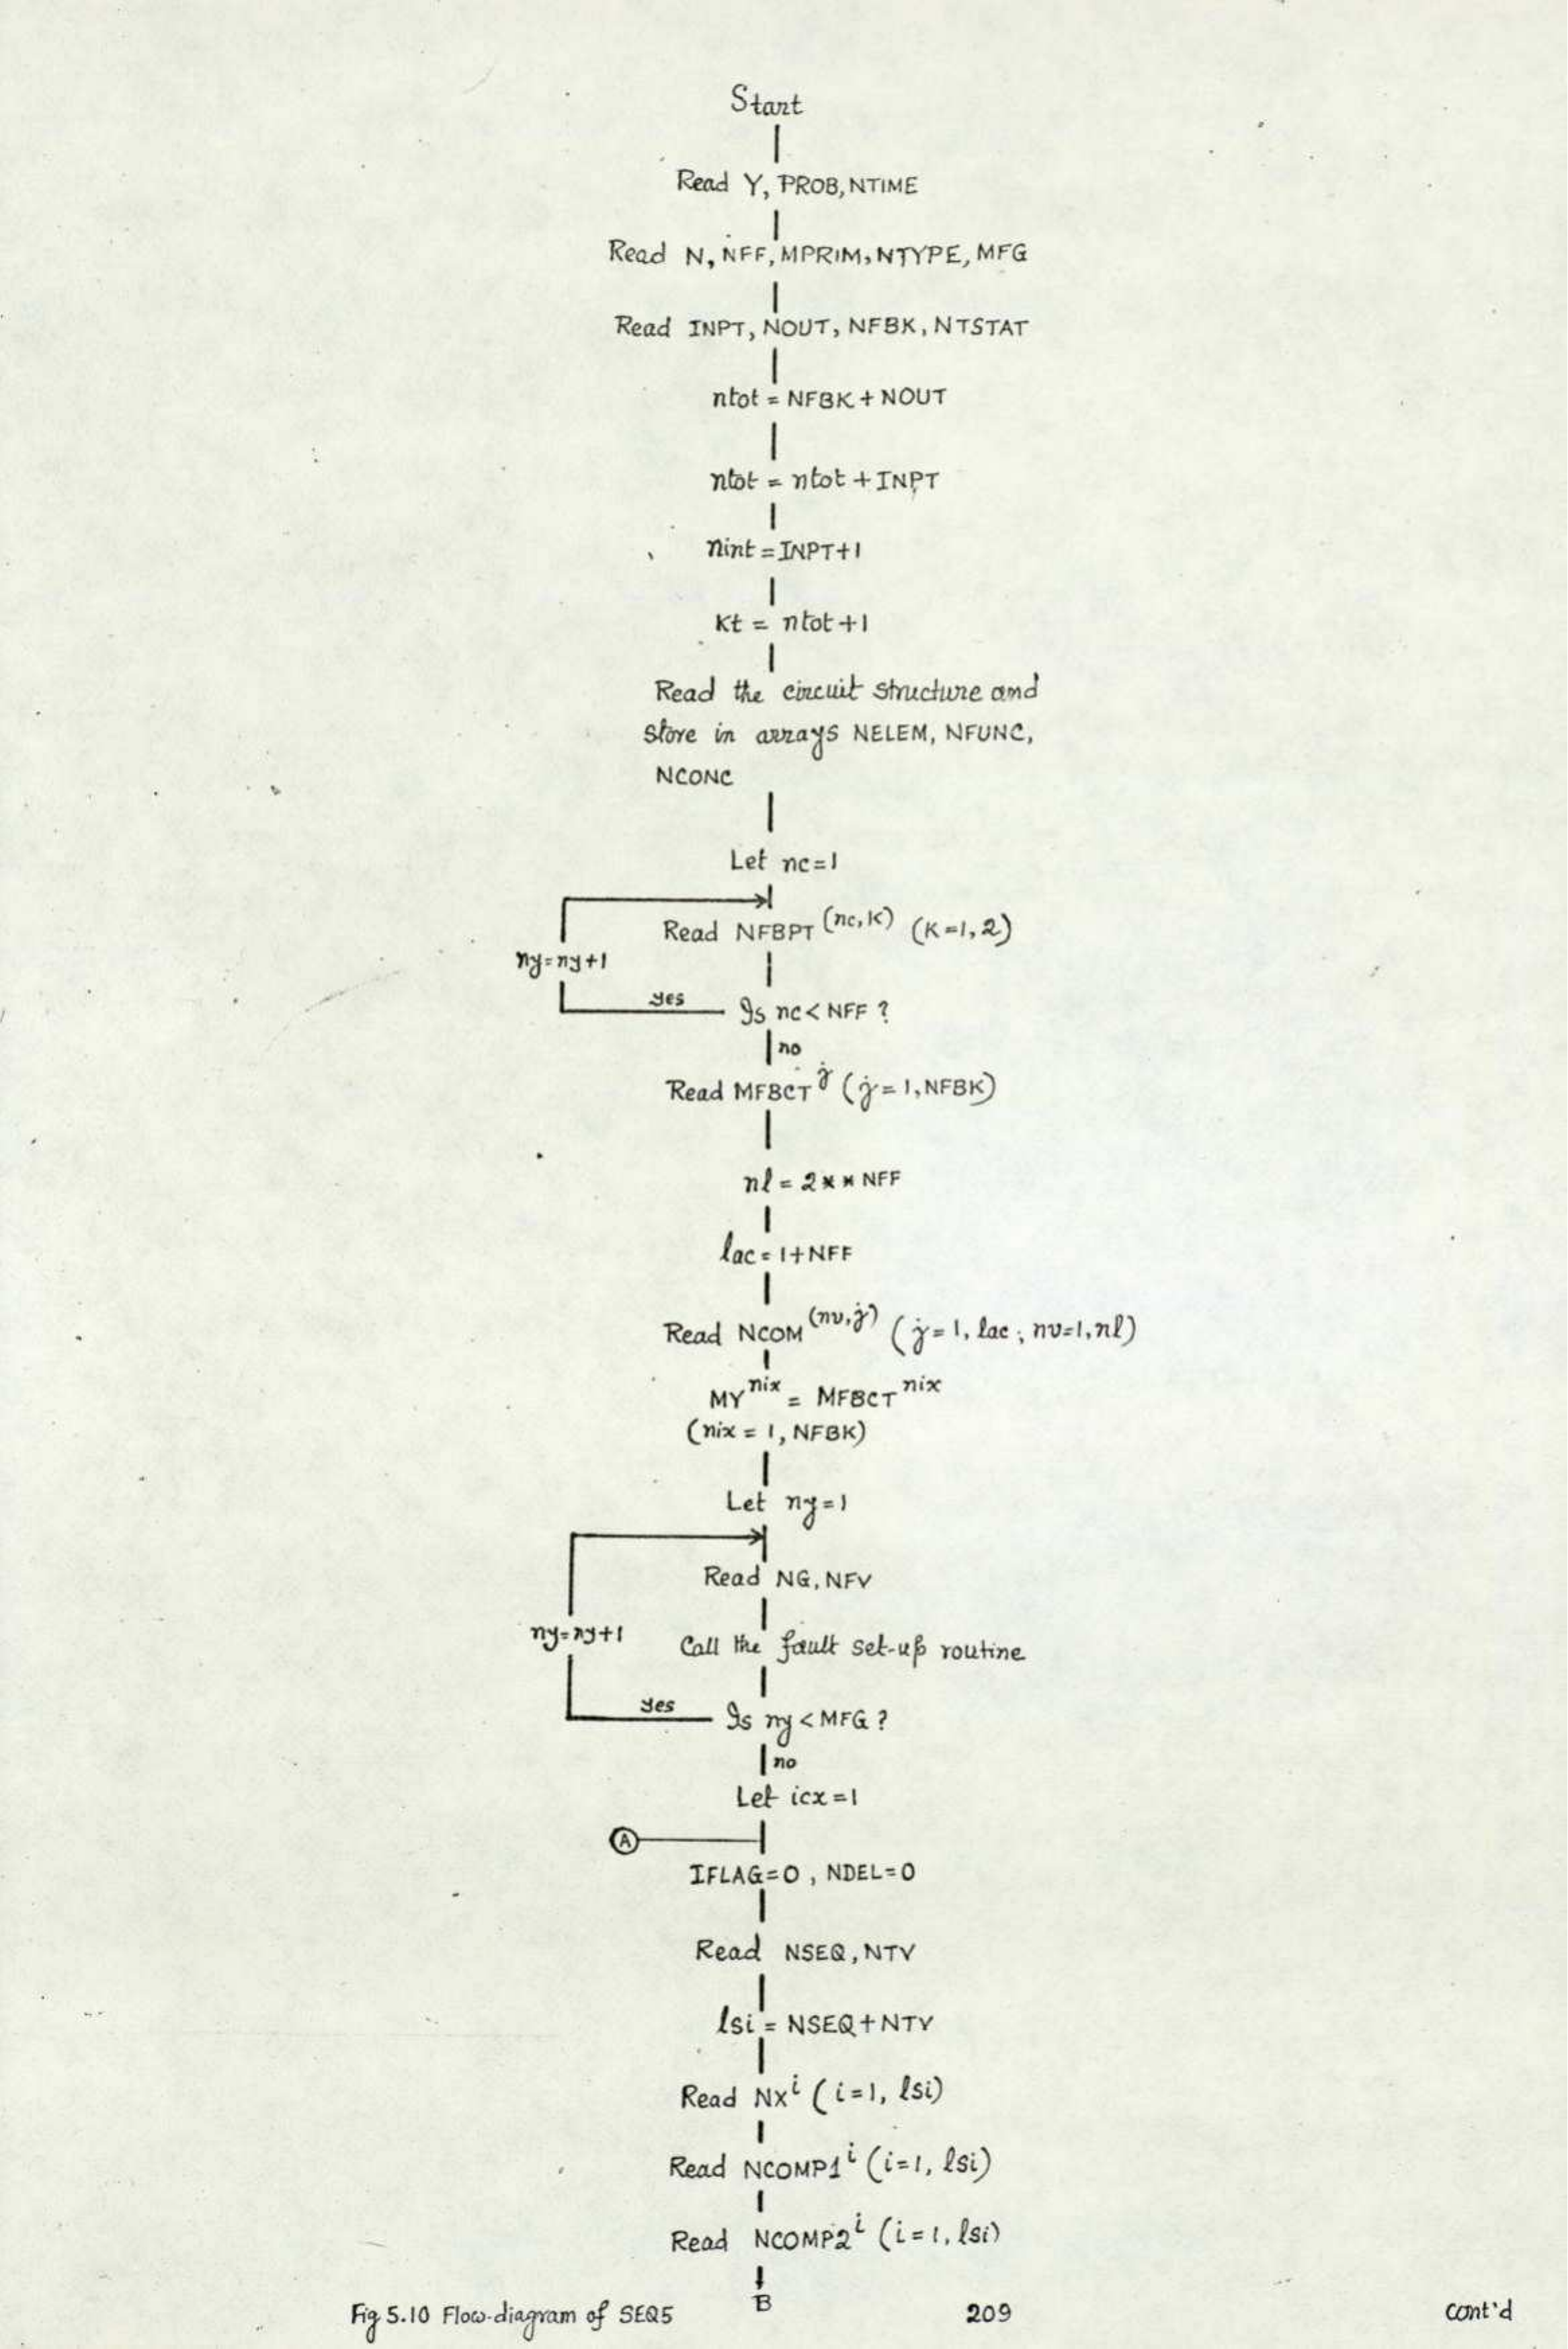 Start
Read Y, PROB, NTIME
Read N, NFF, MPRIM, NTYPE, MFG
Read INPT, NOUT, NFBK, NTSTAT
ntot = NFBK + NOUT
ntot = ntot + INPT
nint = INPT+1
Kt = ntot +1
Read the circuit structure and
store in arrays NELEM, NFUNC,
NCONC
Let nc=1
Read NFBPT (nc,K) (K=1,2)
ny=ny+1
yes Is nc < NFF ?
no
Read MFBCT j (j = 1, NFBK)
nl = 2** NFF
lac = 1+NFF
Read NCOM (nv,j) (j=1, lac ; nv=1, nl)
MY nix = MFBCT nix
(nix = 1, NFBK)
Let ny=1
Read NG, NFV
ny=ny+1 Call the fault set-up routine
yes Is ny < MFG ?
no
Let icx =1
A
IFLAG=0 , NDEL=0
Read NSEQ, NTV
lsi = NSEQ+NTV
Read NX i (i=1, lsi)
Read NCOMP1 i (i=1, lsi)
Read NCOMP2 i (i=1, lsi)
B
Fig 5.10 Flow-diagram of SEQ5 209 cont'd